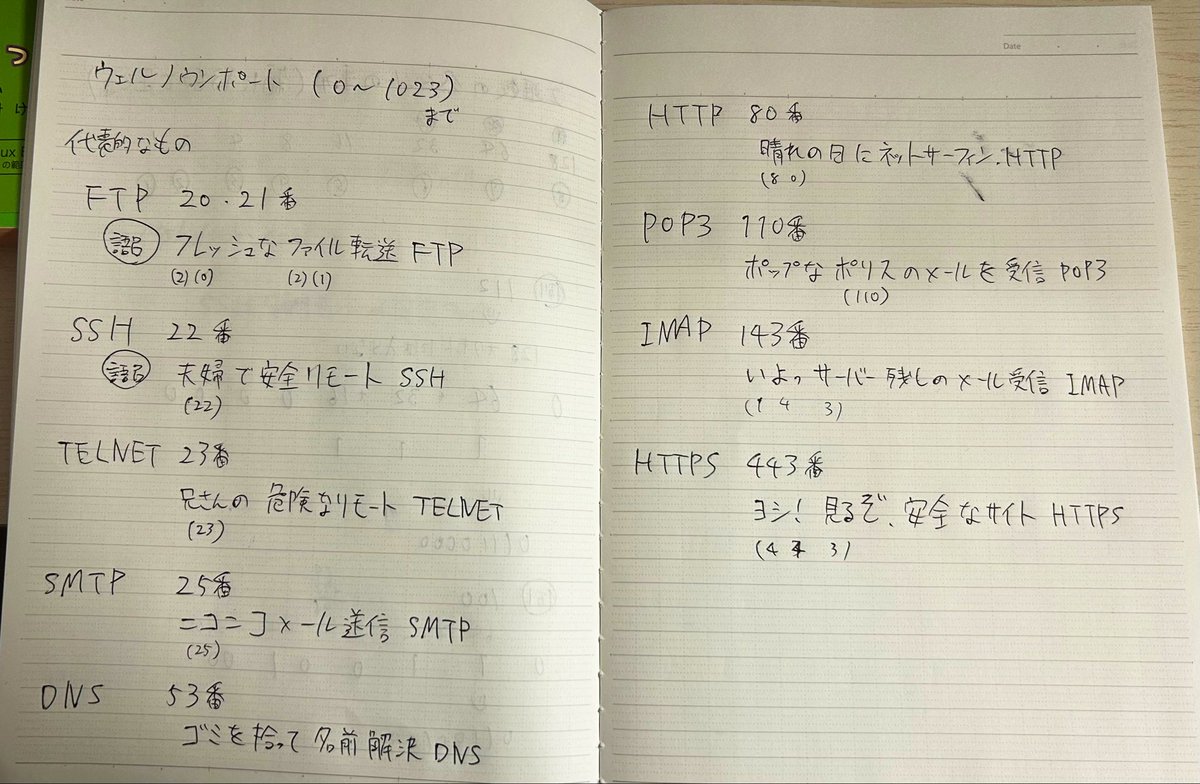 ウェルノウンポート (0～1023)
まで
代表的なもの
FTP 20・21番
語呂 フレッシュなファイル転送 FTP
(2)(0) (2)(1)
SSH 22番
語呂 夫婦で安全リモート SSH
(22)
TELNET 23番
兄さんの危険なリモート TELNET
(23)
SMTP 25番
ニコニコメール送信 SMTP
(25)
DNS 53番
ゴミを拾って名前解決 DNS
Date
HTTP 80番
晴れの日にネットサーフィン、HTTP
(80)
POP3 110番
ポップなポリスのメールを受信 POP3
(110)
IMAP 143番
いよっサーバー残しのメール受信 IMAP
(1 4 3)
HTTPS 443番
ヨシ! 見るぞ、安全なサイト HTTPS
(4 4 3)